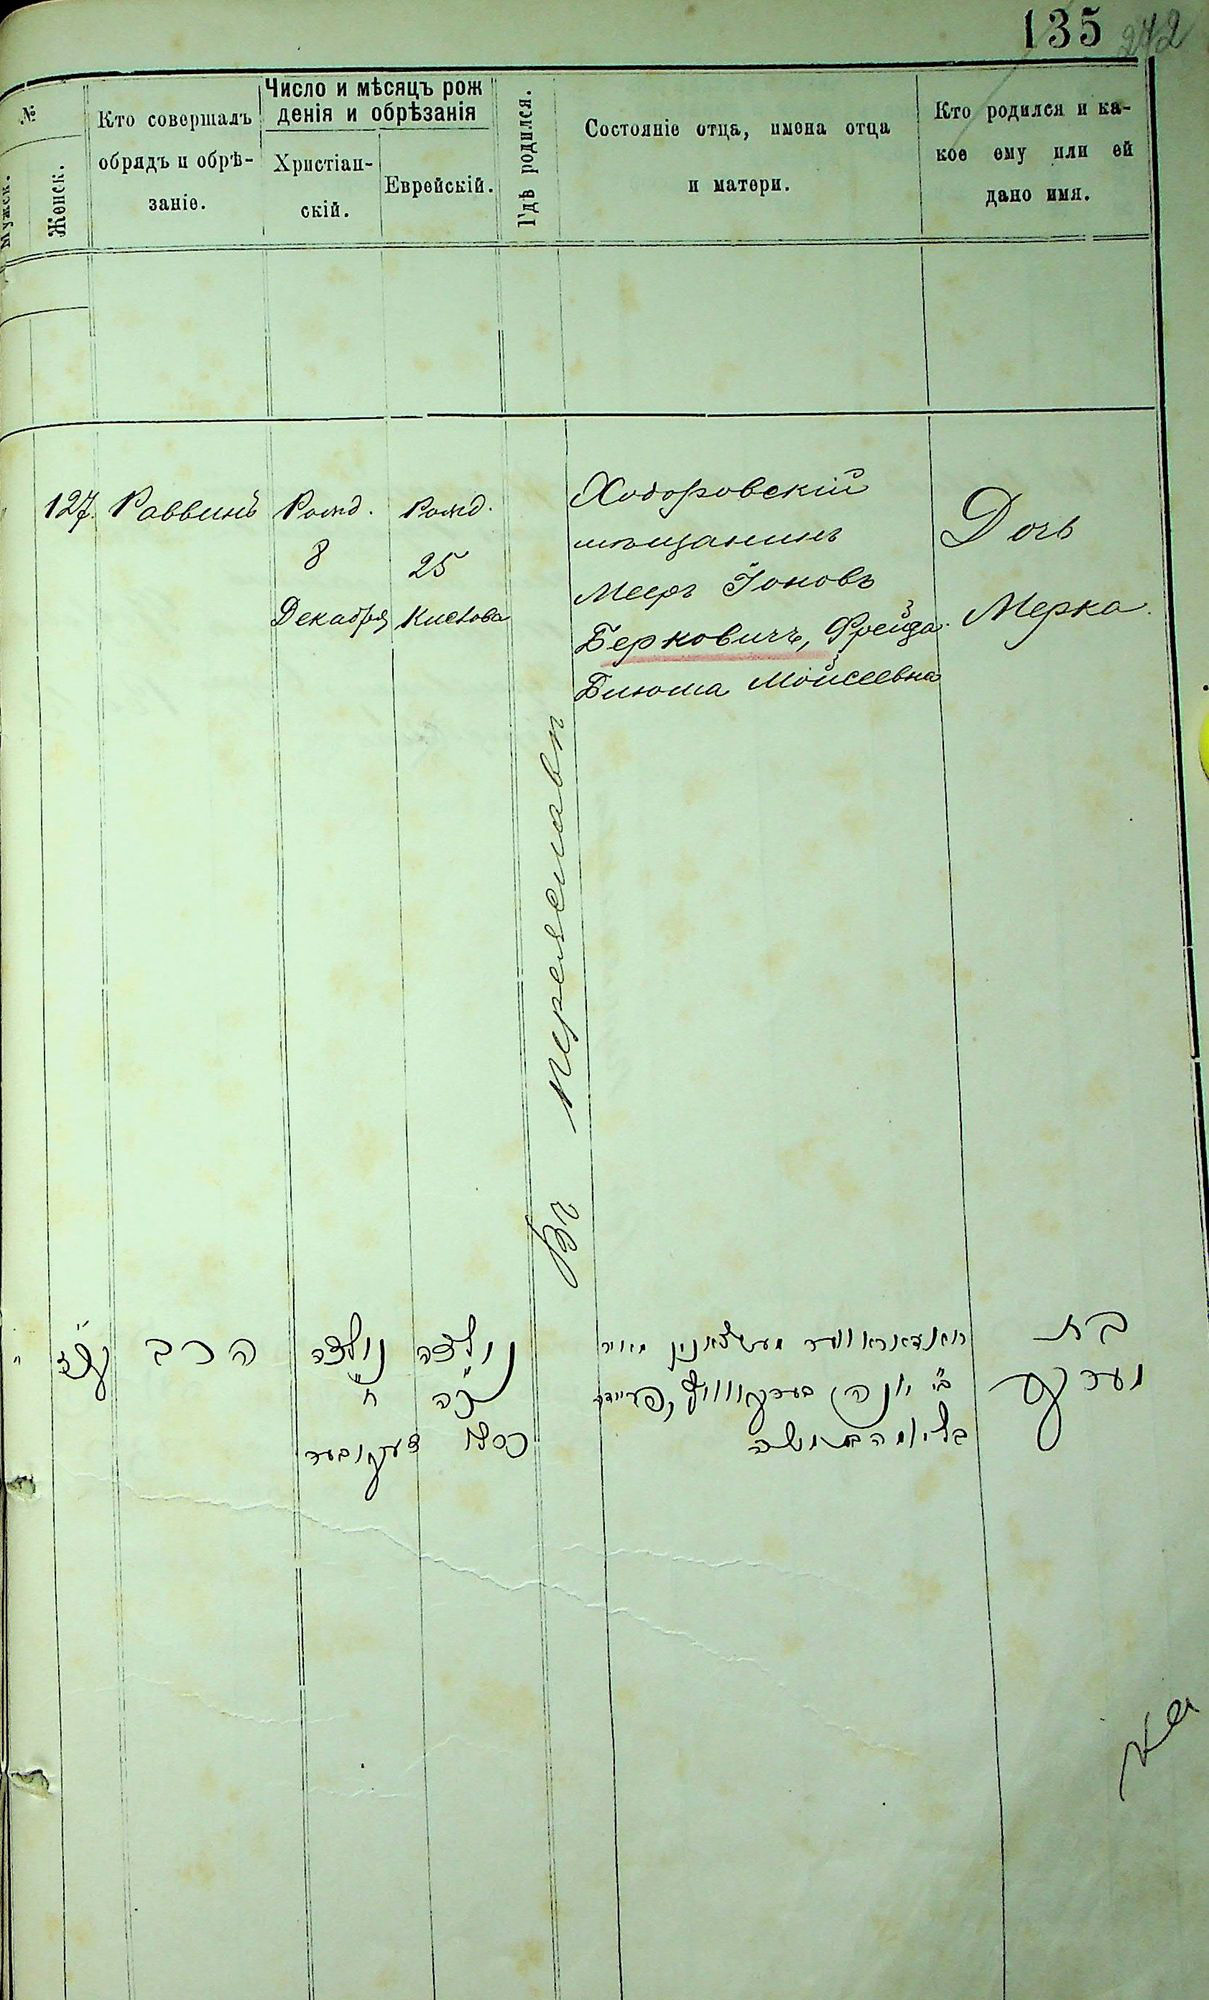 135 242
№
Мужск.
Женск.
Кто совершалъ
обрядъ и обрѣ-
заніе.
Число и мѣсяцъ рож
денія и обрѣзанія
Христіан-
скій.
Еврейскій.
Гдѣ родился.
Состояніе отца, имена отца
и матери.
Кто родился и ка-
кое ему или ей
дано имя.
127.
Раввинъ
Рожд.
8
Декабря
Рожд.
25
Кислова
Въ Переяславѣ
Ходоровскій
мѣщанинъ
Меер Іоновъ
Берковичъ, Фрейда
Блюма Мойсеевна
Дочь
Мерка.
הרב
נולדה
ח'
דעקאבער
נולדה
כ"ה
כסלו
מעשצאנין מאיר
יונה בערקאוויץ, פריידה
בלומה במשה
בת
מערקע